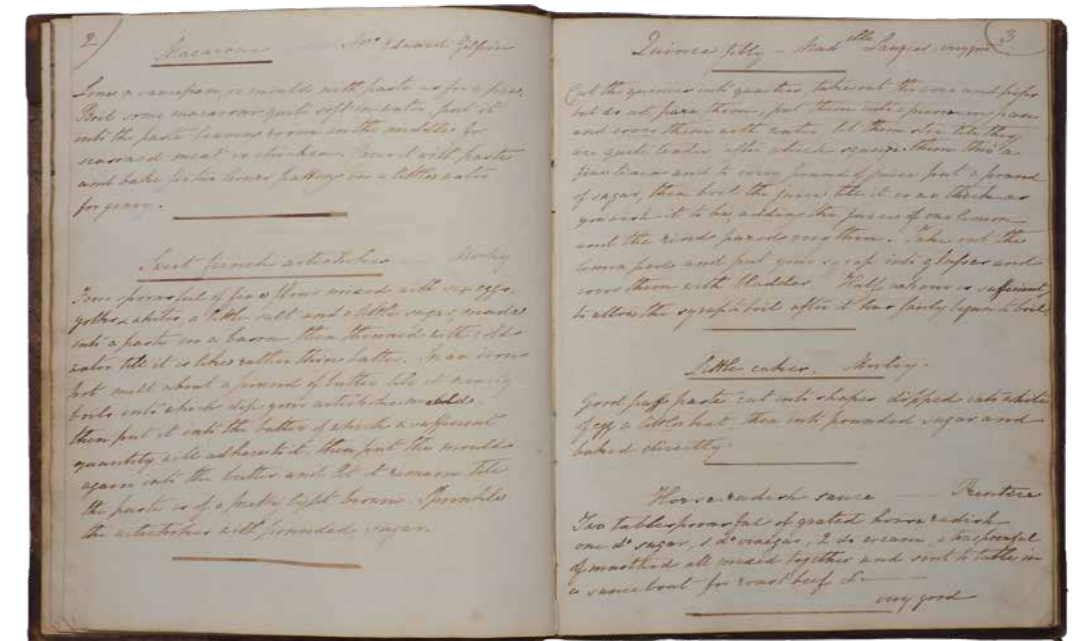 2
Macaroni Mrs Edward Golpin
Line a saucepan or mould with paste as for a pie.
Boil some macaroni quite soft in water put it
into the paste leaving room in the middle for
seasoned meat or chicken. Cover it with paste
and bake for two hours putting in a little water
for gravy.
Sweet french artichokes Morley
Four spoonsful of fine flour mixed with six eggs,
yolks & whites, a little salt and a little sugar, made
into a paste in a bason then thinned with cold
water till it is like rather thin batter. In an iron
pot melt about a pound of butter till it nearly
boils into which dip your artichoke mould,
then put it into the batter of which a sufficient
quantity will adhere to it, then put the mould
again into the butter and let it remain till
the paste is of a pretty light brown. Sprinkle
the artichokes with pounded sugar.
3
Quince Jelly – Mad elle Laugier
Cut the quinces into quarters, take out the core and pips
but do not pare them, put them into a preserving pan
and cover them with water let them stew till they
are quite tender after which squeeze them thro' a
fine linen and to every pound of juice put a pound
of sugar, then boil the juice till it is as thick as
you wish it to be, adding the juice of one lemon
and the rind pared very thin. Take out the
lemon peel and put your syrup into glasses and
cover them with bladder. Half an hour is sufficient
to allow the syrup to boil after it has fairly begun to boil
Little cakes. Morley.
Good puff paste cut into shapes dipped into white
of egg a little beat then into pounded sugar and
baked directly.
Horse radish sauce Prentice
Two tablespoons ful of grated horse radish
one do sugar, 1 do vinegar, 2 do cream, a teaspoonful
of mustard all mixed together and sent to table in
a sauceboat for roast beef &c
very good